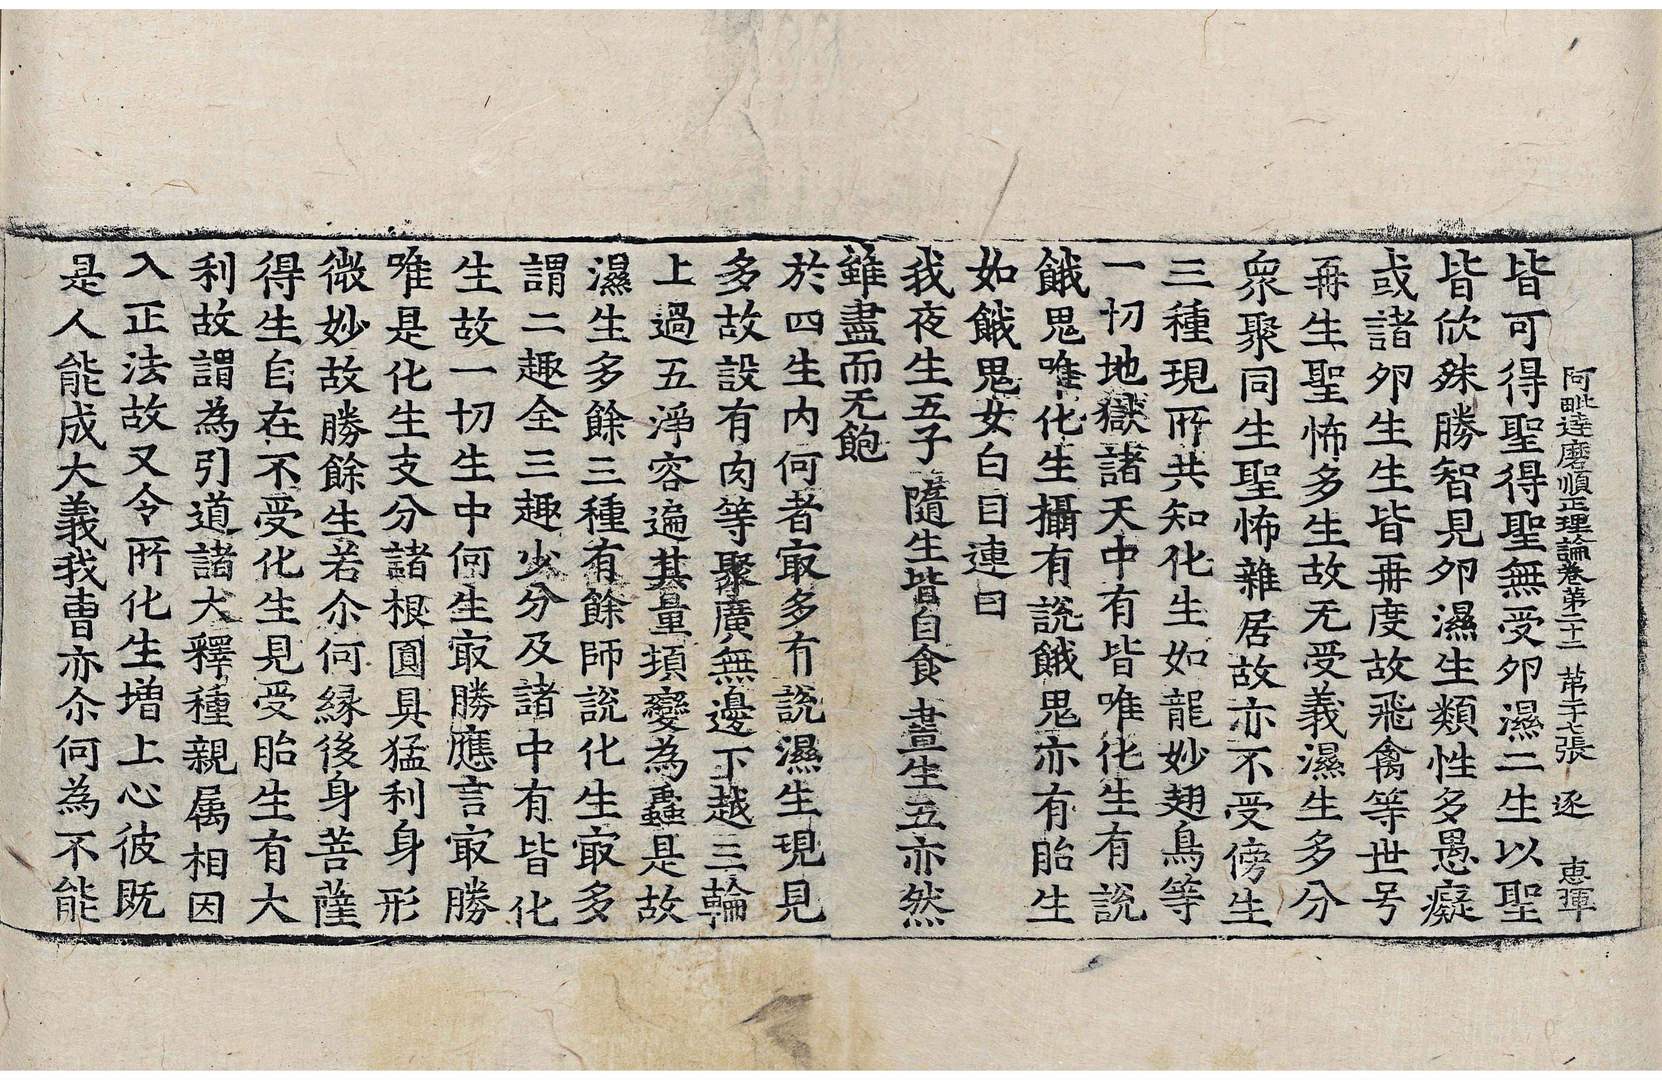 阿毗達磨順正理論卷第二十二 苐十七張 逐 惠揮
皆可得聖得聖無受夘濕二生以聖
皆欣殊勝智見夘濕生類性多愚癡
或諸夘生生皆再度故飛禽等世号
再生聖怖多生故无受義濕生多分
衆聚同生聖怖雜居故亦不受傍生
三種現所共知化生如龍妙翅鳥等
一切地獄諸天中有皆唯化生有說
餓鬼唯化生攝有說餓鬼亦有胎生
如餓鬼女白目連曰
我夜生五子 隨生皆自食 晝生五亦然
雖盡而无飽
於四生內何者㝡多有說濕生現見
多故設有肉等聚廣無邊下越三輪
上過五淨容遍其量頓變為蟲是故
濕生多餘三種有餘師說化生㝡多
謂二趣全三趣少分及諸中有皆化
生故一切生中何生㝡勝應言㝡勝
唯是化生支分諸根圎具猛利身形
微妙故勝餘生若尒何緣後身菩薩
得生自在不受化生見受胎生有大
利故謂為引道諸大釋種親属相因
入正法故又令所化生增上心彼既
是人能成大義我曺亦尒何為不能